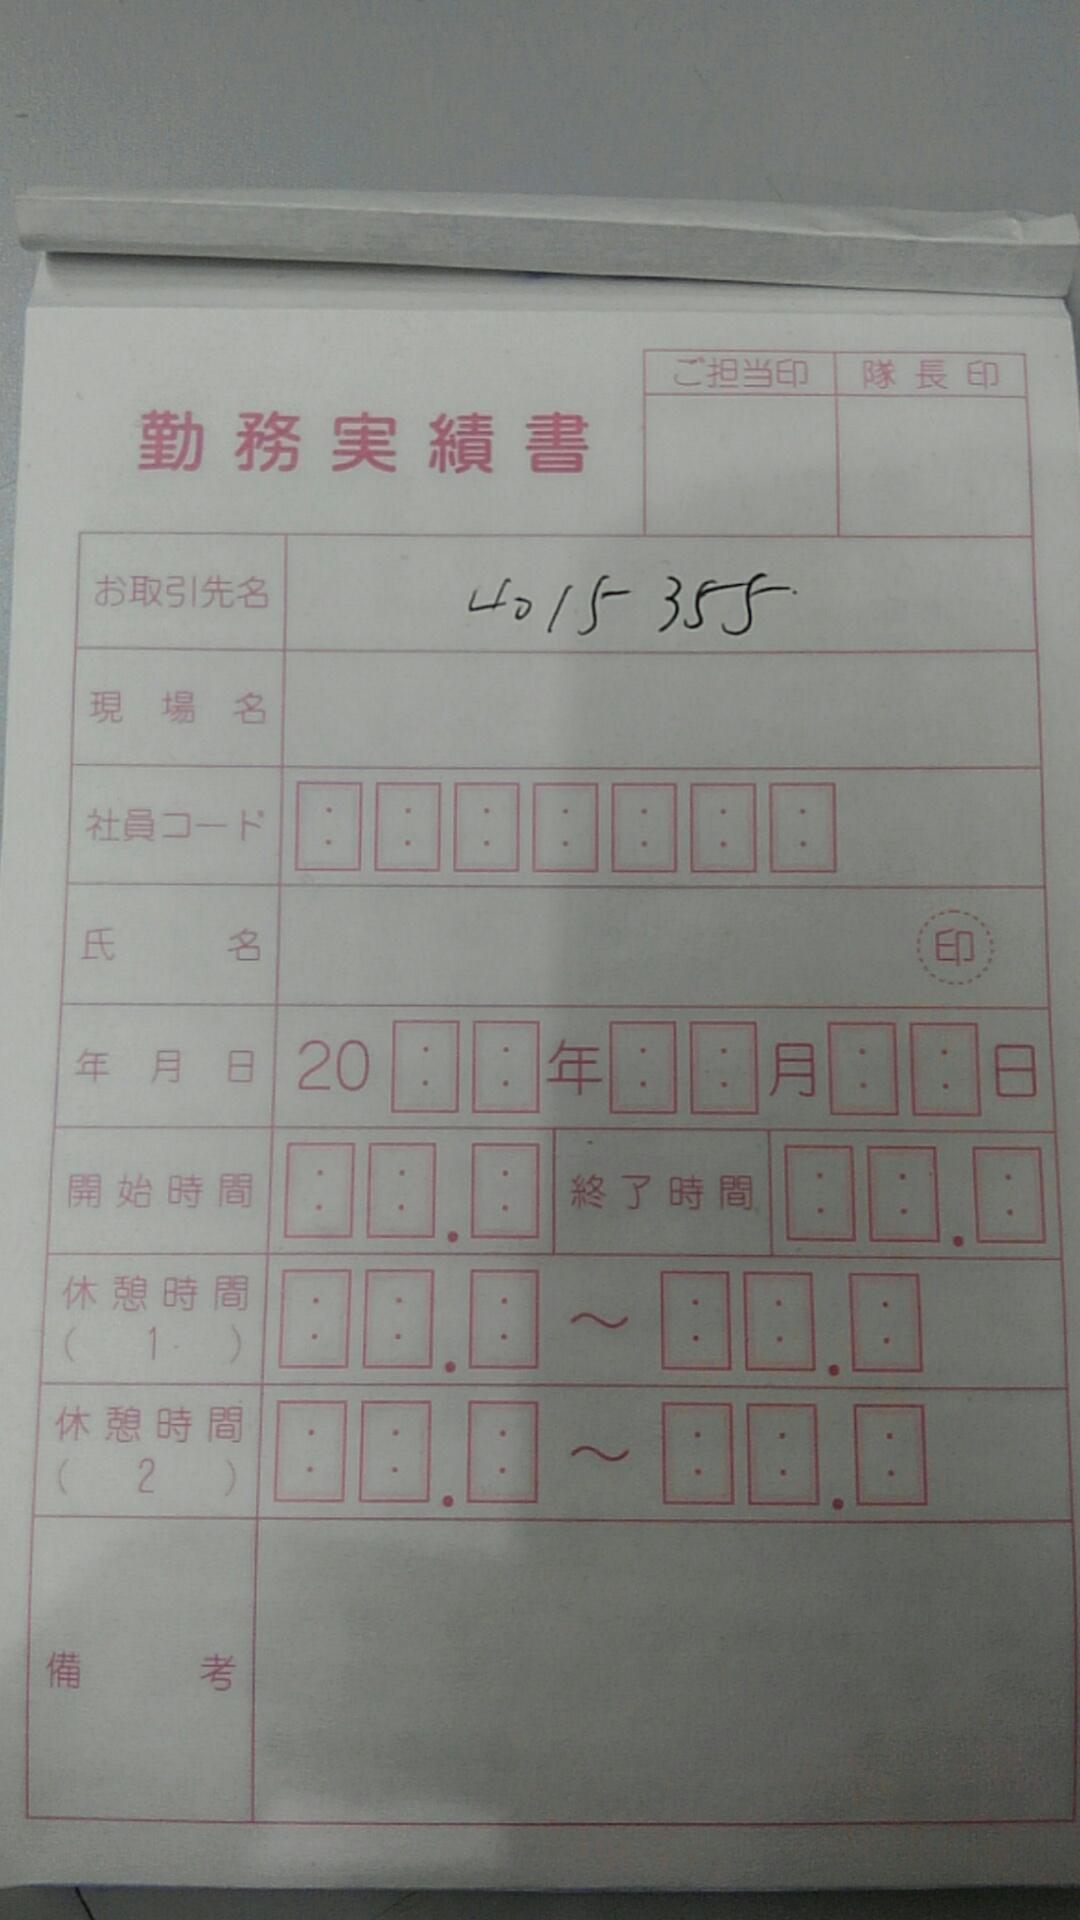 ご担当印 隊長印
勤務実績書
お取引先名 4015355
現場名
社員コード
氏名 印
年月日 20 年 月 日
開始時間 . 終了時間 .
休憩時間 . ～ .
(1)
休憩時間 . ～ .
(2)
備考